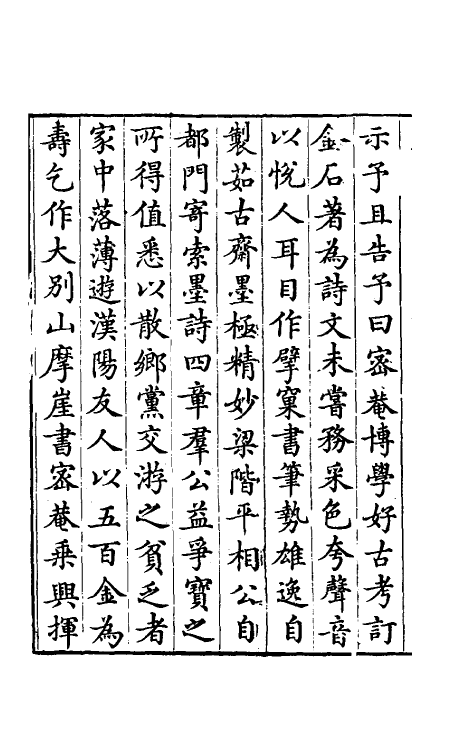 示予且告予曰宻菴博學好古考訂
金石著為詩文未嘗務采色夸聲音
以悅人耳目作擘窠書筆勢雄逸自
製茹古齋墨極精妙梁階平相公自
都門寄索墨詩四章羣公益爭寶之
所得值悉以散鄉黨交游之貧乏者
家中落薄遊漢陽友人以五百金為
壽乞作大别山摩崖書宻菴乘興揮